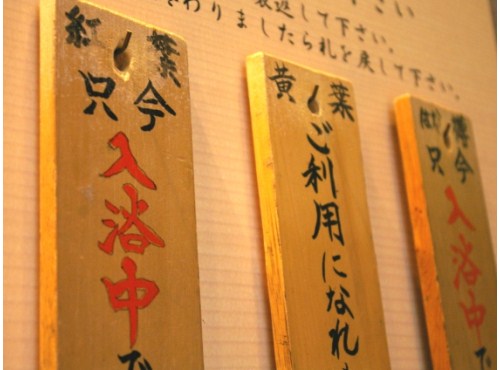 さい
返して下さい。
わりましたら札を戻して下さい。
紅
只今
入浴中で
黄葉
ご利用になれ
只今
入浴中